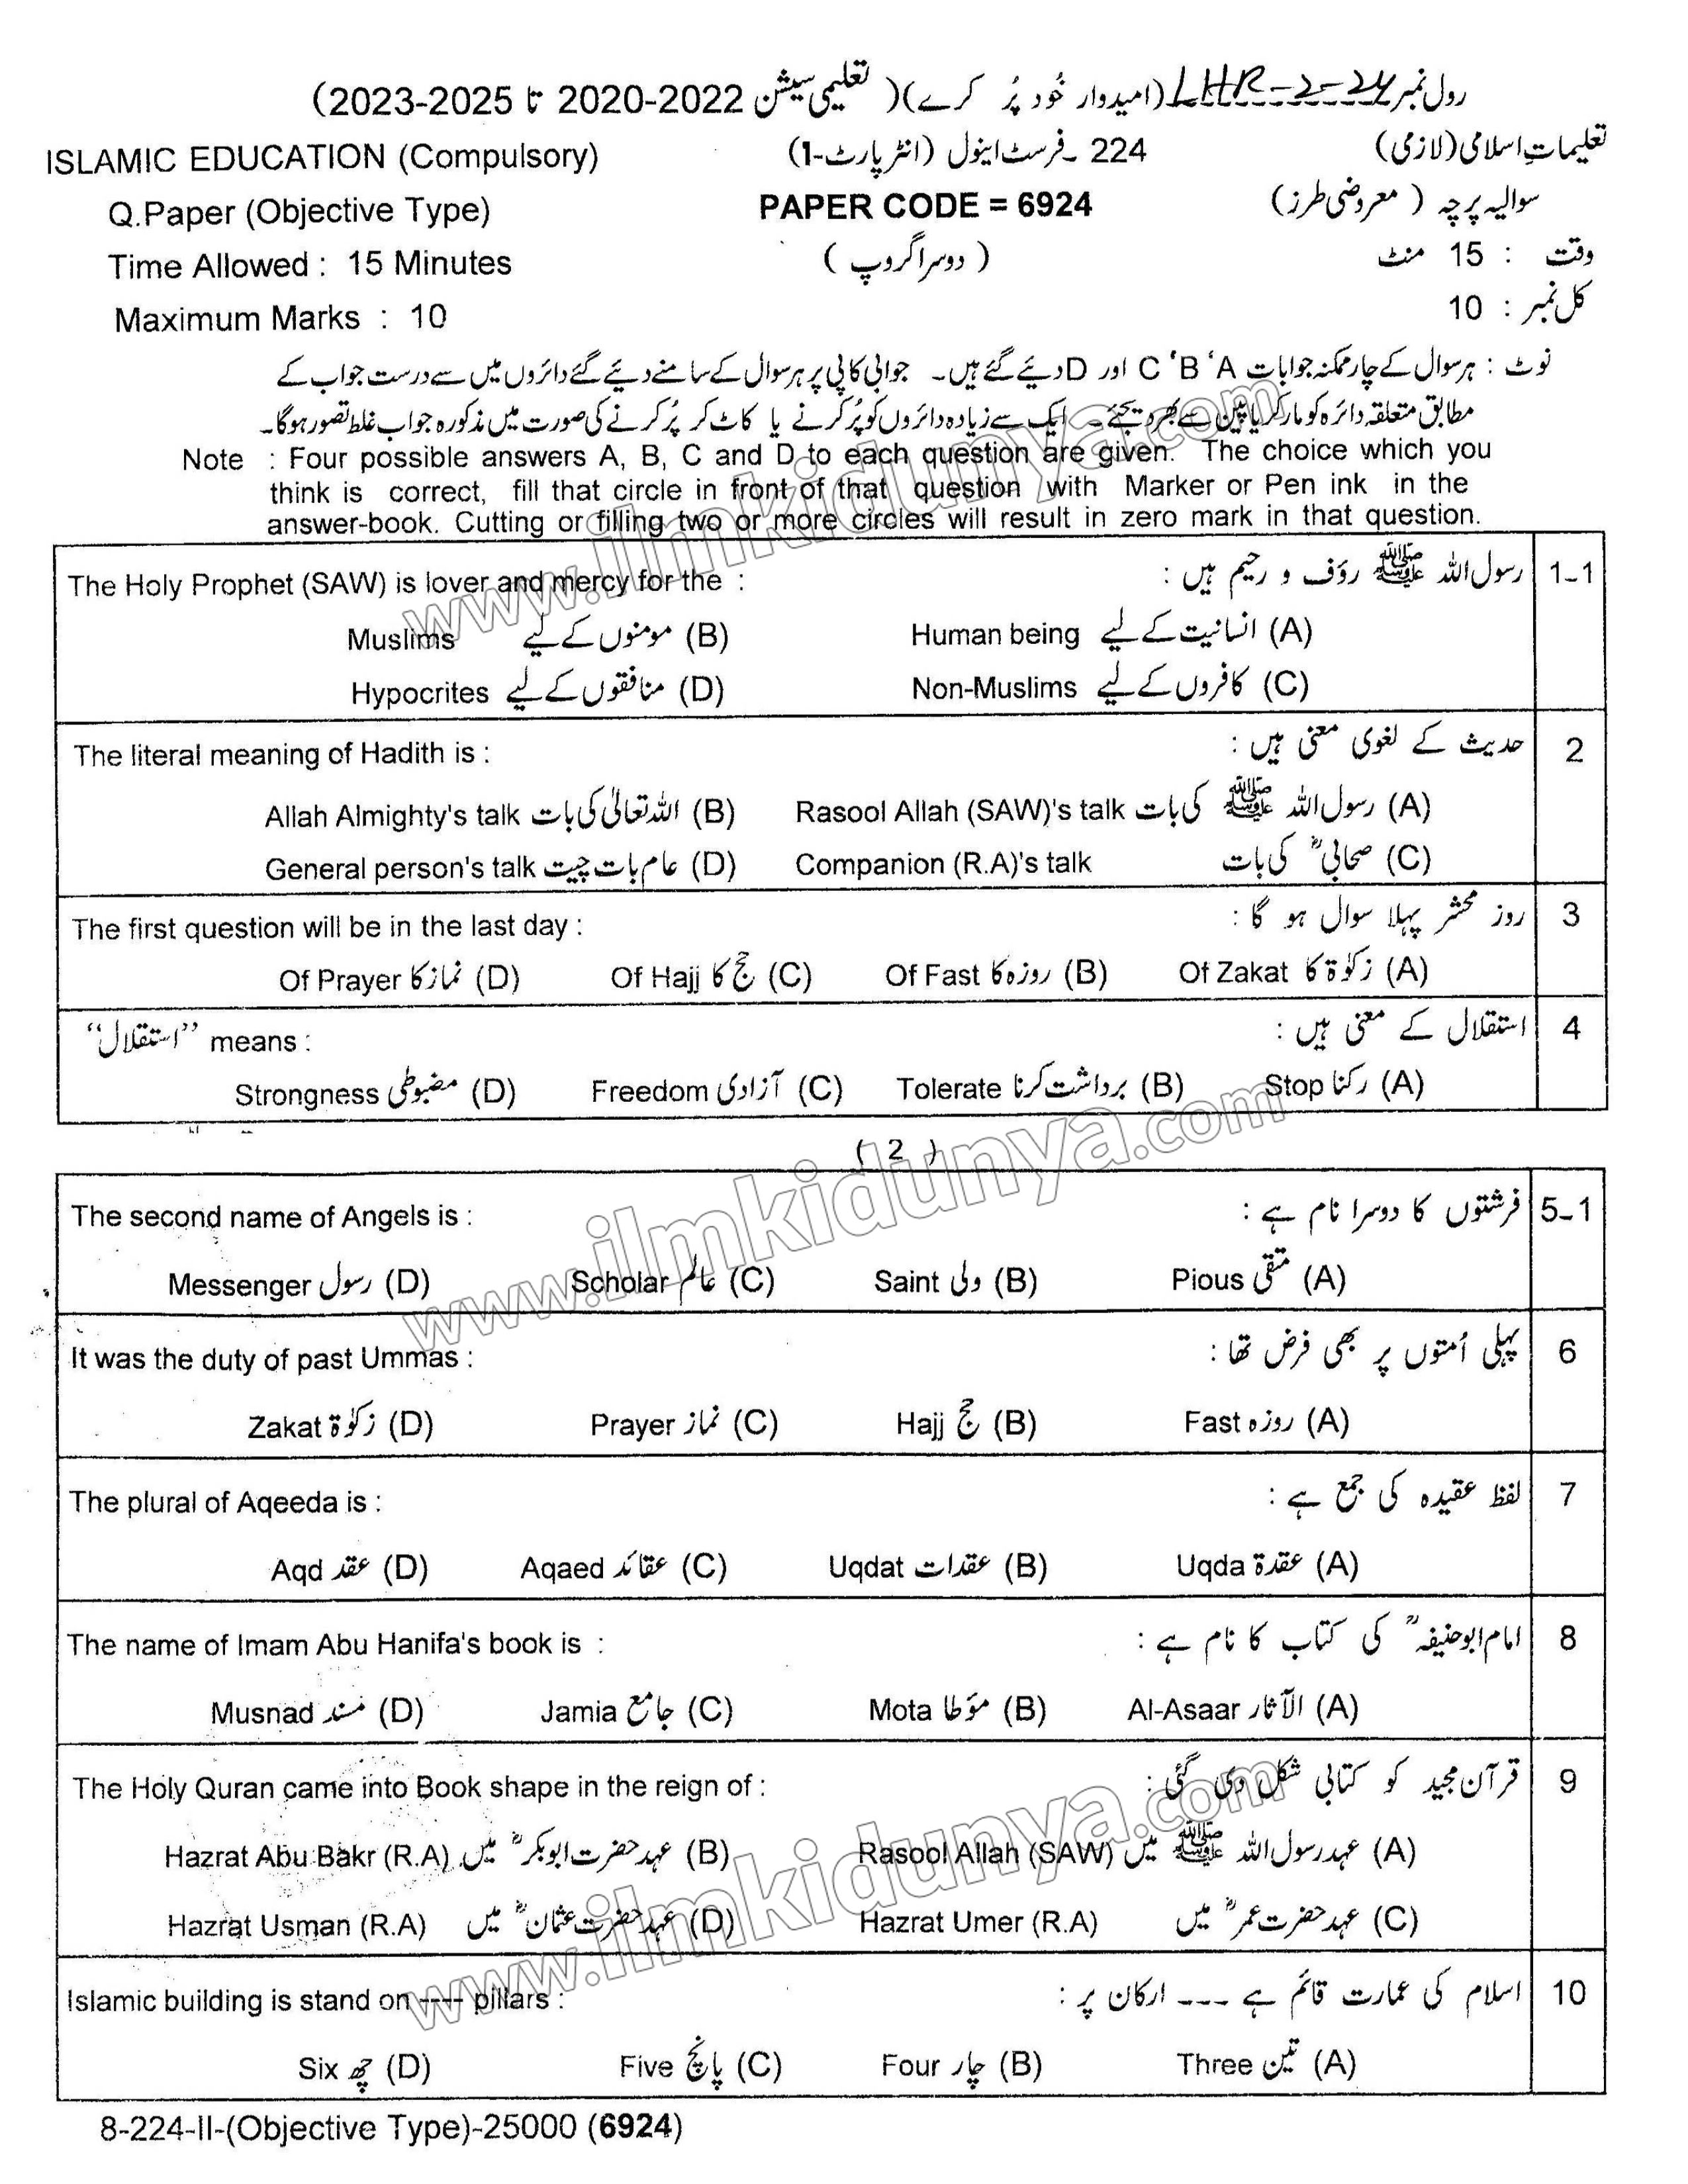 رول نمبر LHR-2-24 (امیدوار خُود پُر کرے) ( تعلیمی سیشن 2022-2020 تا 2025-2023)
ISLAMIC EDUCATION (Compulsory) 224 ۔فرسٹ اینول (انٹر پارٹ-1) تعلیماتِ اسلامی (لازمی)
Q.Paper (Objective Type) PAPER CODE = 6924 سوالیہ پرچہ ( معروضی طرز)
Time Allowed : 15 Minutes ( دوسرا گروپ ) وقت : 15 منٹ
Maximum Marks : 10 کل نمبر : 10
نوٹ : ہر سوال کے چار ممکنہ جوابات A ‘B ‘C اور D دیئے گئے ہیں۔ جوابی کاپی پر ہر سوال کے سامنے دیئے گئے دائروں میں سے درست جواب کے
مطابق متعلقہ دائرہ کو مارکر یا پین سے بھر دیجئے۔ ایک سے زیادہ دائروں کو پُر کرنے یا کاٹ کر پُر کرنے کی صورت میں مذکورہ جواب غلط تصور ہوگا۔
Note : Four possible answers A, B, C and D to each question are given. The choice which you
think is correct, fill that circle in front of that question with Marker or Pen ink in the
answer-book. Cutting or filling two or more circles will result in zero mark in that question.
The Holy Prophet (SAW) is lover and mercy for the : رسول اللہ ﷺ رؤف و رحیم ہیں : 1-1
Muslims مومنوں کے لیے (B) Human being انسانیت کے لیے (A)
Hypocrites منافقوں کے لیے (D) Non-Muslims کافروں کے لیے (C)
The literal meaning of Hadith is : حدیث کے لغوی معنی ہیں : 2
Allah Almighty's talk اللہ تعالیٰ کی بات (B) Rasool Allah (SAW)'s talk رسول اللہ ﷺ کی بات (A)
General person's talk عام بات چیت (D) Companion (R.A)'s talk صحابیؓ کی بات (C)
The first question will be in the last day : روز محشر پہلا سوال ہو گا : 3
Of Prayer نماز کا (D) Of Hajj حج کا (C) Of Fast روزہ کا (B) Of Zakat زکوٰۃ کا (A)
“استقلال” means : استقلال کے معنی ہیں : 4
Strongness مضبوطی (D) Freedom آزادی (C) Tolerate برداشت کرنا (B) Stop رکنا (A)
( 2 )
The second name of Angels is : فرشتوں کا دوسرا نام ہے : 5-1
Messenger رسول (D) Scholar عالم (C) Saint ولی (B) Pious متقی (A)
It was the duty of past Ummas : پہلی اُمتوں پر بھی فرض تھا : 6
Zakat زکوٰۃ (D) Prayer نماز (C) Hajj حج (B) Fast روزہ (A)
The plural of Aqeeda is : لفظ عقیدہ کی جمع ہے : 7
Aqd عقد (D) Aqaed عقائد (C) Uqdat عقدات (B) Uqda عقدۃ (A)
The name of Imam Abu Hanifa's book is : امام ابوحنیفہؒ کی کتاب کا نام ہے : 8
Musnad مسند (D) Jamia جامع (C) Mota مؤطا (B) Al-Asaar الآثار (A)
The Holy Quran came into Book shape in the reign of : قرآن مجید کو کتابی شکل دی گئی : 9
Hazrat Abu Bakr (R.A) عہد حضرت ابوبکرؓ میں (B) Rasool Allah (SAW) عہد رسول اللہ ﷺ میں (A)
Hazrat Usman (R.A) عہد حضرت عثمانؓ میں (D) Hazrat Umer (R.A) عہد حضرت عمرؓ میں (C)
Islamic building is stand on ---- pillars : اسلام کی عمارت قائم ہے --- ارکان پر : 10
Six چھ (D) Five پانچ (C) Four چار (B) Three تین (A)
8-224-II-(Objective Type)-25000 (6924)
www.ilmkidunya.com
www.ilmkidunya.com
www.ilmkidunya.com